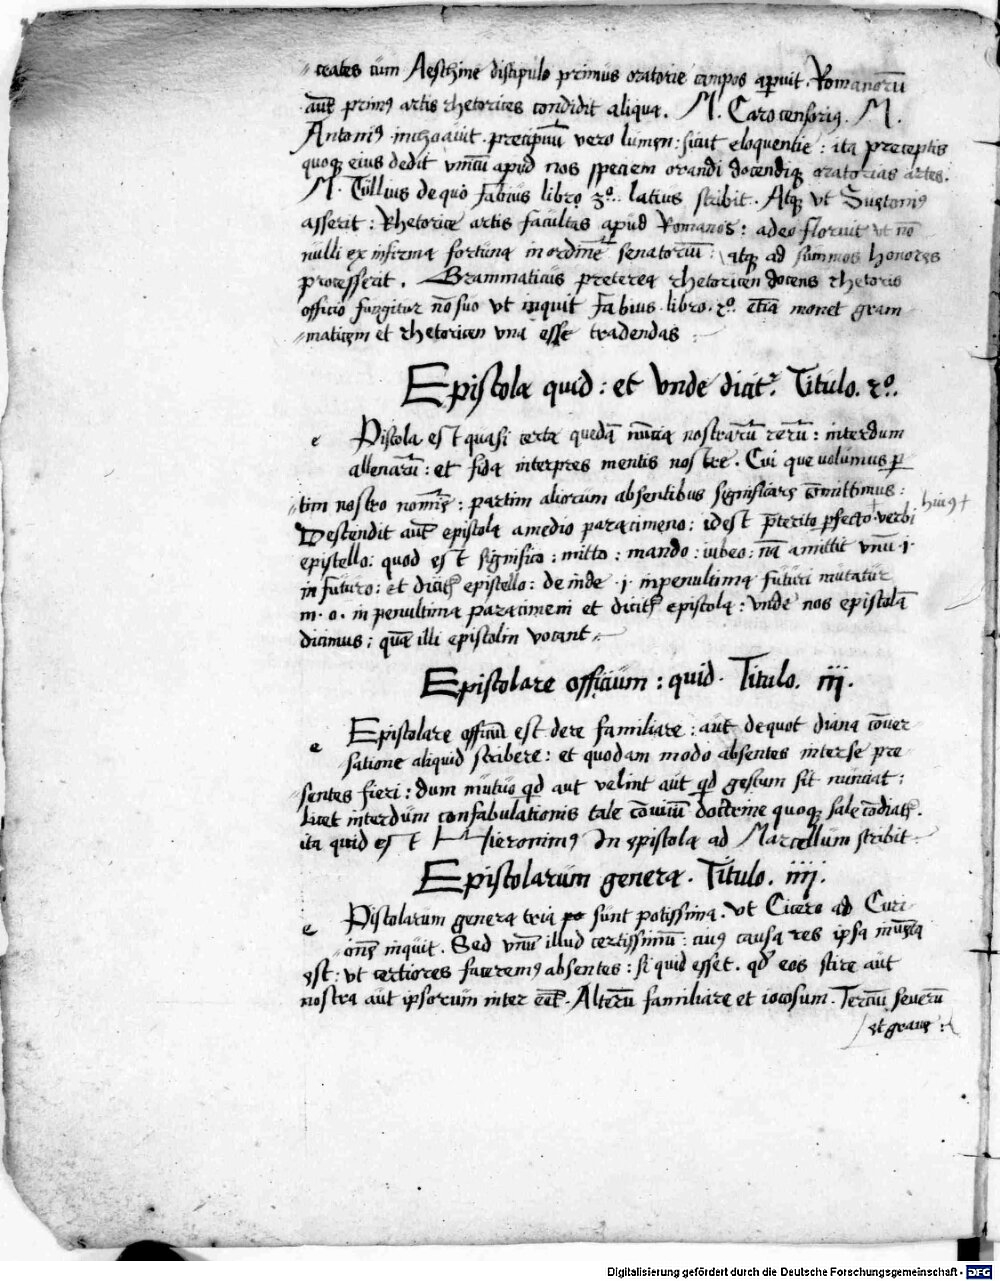 crates cum Aeschine discipulo primus oratorie campos aperuit. Romanorū
autē primꝰ artis rhetorices condidit aliqua. M. Cato censoriꝰ. M.
Antoniꝰ inchoauit. precipuū vero lumen: sicut eloquentie: ita preceptis
quoqꝫ eius dedit vnicū apud nos speciem orandi docendiqꝫ oratorias artes.
M. Tullius de quo Fabius libro 3º. latius scribit. Atqꝫ vt Suetoniꝰ
asserit: Rhetorice artis facultas apud Romanos: adeo floruit vt nō
nulli ex infirma fortuna in ordinē senatoriū: atqꝫ ad summos honores
processerit. Grammaticus preterea rhetoricen docens rhetoris
officio fungitur nō suo vt inquit Fabius libro. 2º. etiā monet gram
maticem et rhetoricen vna esse tradendas:
Epistola quid: et vnde dicitʳ. Titulo. 2º.
e Pistola est quasi certa quedā nūcia nostrarū rerū: interdum
alienarū: et fida interpres mentis nostre. Cui que volumus par
tim nostro nomīe: partim aliorum absentibus significare cōmittimus:
Descendit autē epistola a medio paracimeno: id est pterito pfecto verbi huiꝰ
epistello: quod est significo: mitto: mando: iubeo: nā amittit vnū .l.
in futuro: et dicitʳ epistello: deinde .i. in penultima futuri mutatur
in .o. in penultima paracimeni et dicitʳ epistola: vnde nos epistolā
dicimus: quā illi epistolin vocant.
Epistolare officium: quid. Titulo. iij.
e Epistolare officiū est de re familiare: aut de quotidiana cōuer
satione aliquid scribere: et quodam modo absentes inter se pre
sentes fieri: dum mutuo qd aut velint aut qd gestum sit nunciāt:
Licet interdum confabulationis tale cōuiuiū doctrine quoqꝫ sale cōdiatʳ.
ita quid est Hieronimꝰ In epistola ad Marcellum scribit.
Epistolarum genera. Titulo. iiij.
e Pistolarum genera tria sunt potissima. vt Cicero ad Curi
onē inquit. Sed vnū illud certissimū: cuiꝰ causa res ipsa inuēta
est: vt certiores faceremꝰ absentes: si quid esset. qd eos scire aut
nostra aut ipsorum interēēt. Alterū familiare et iocosum. Terciū seuerū
et graue:
Digitalisierung gefördert durch die Deutsche Forschungsgemeinschaft - DFG